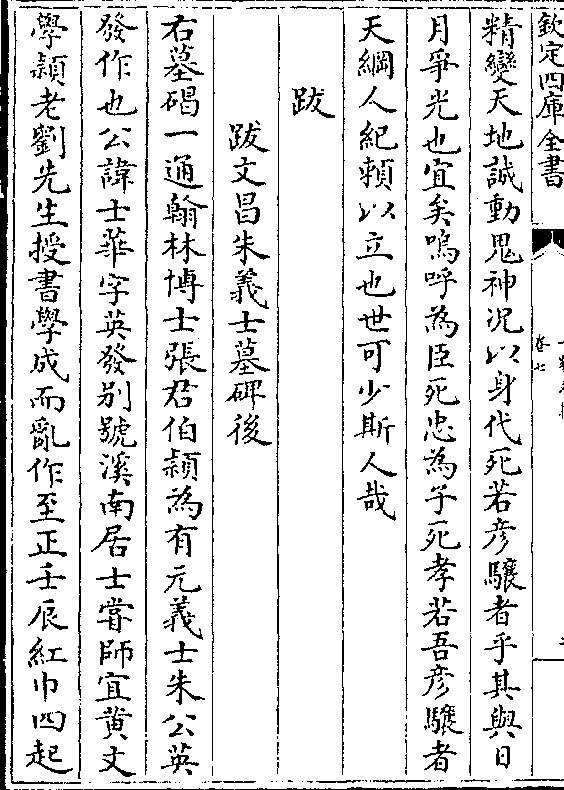 欽定四庫全書
卷七
精變天地誠動鬼神況以身代死若彥驤者乎其與日
月爭光也宜矣嗚呼為臣死忠為子死孝若吾彥驤者
天綱人紀賴以立也世可少斯人哉
跋
跋文昌朱義士墓碑後
右墓碣一通翰林博士張君伯頴為有元義士朱公英
發作也公諱士華字英發別號溪南居士嘗師宜黄文
學頴老劉先生授書學成而亂作至正壬辰紅巾四起